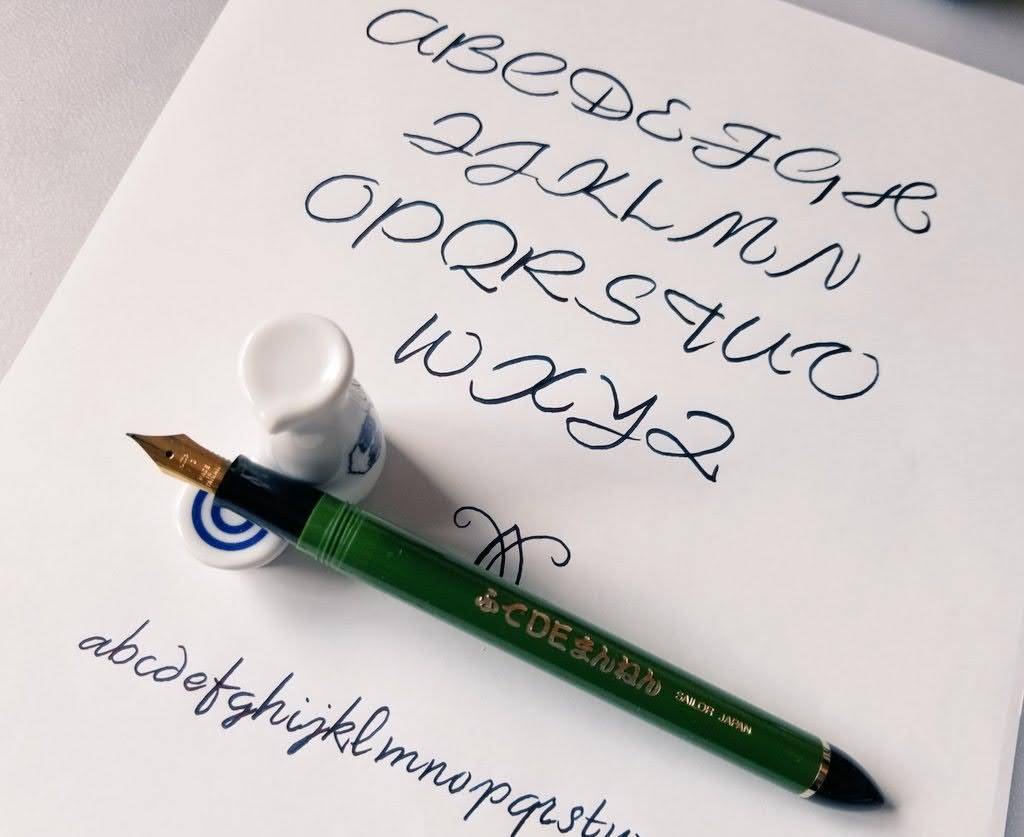 ABCDEFGH
IJKLMN
OPQRSTUV
WXYZ
ふでDEまんねん SAILOR JAPAN
abcdefghijklmnopqrstu